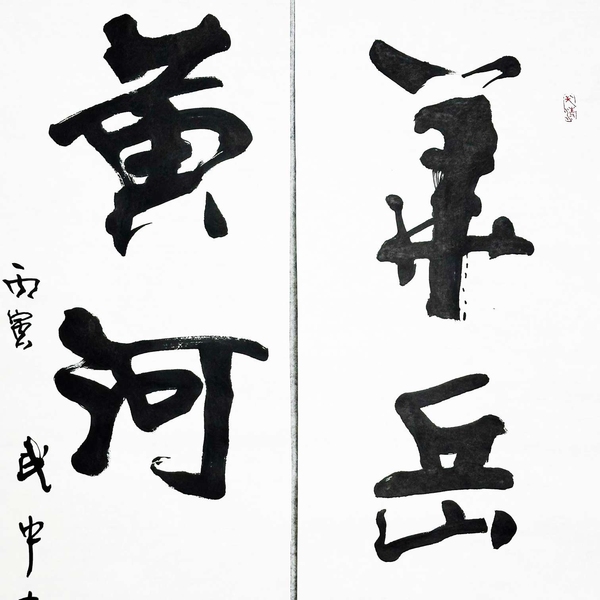 華岳
黄河
丙寅
武中